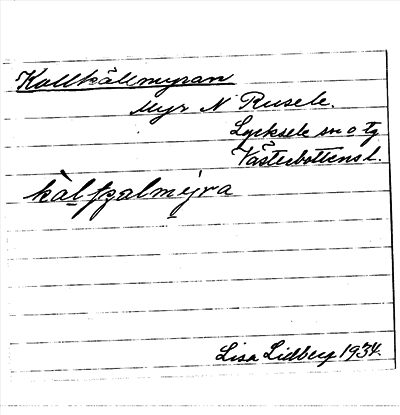 Kallkällmyran
Myr N Rusele.
Lycksele sn o tg
Västerbottens l.
Lisa Lidberg 1934.